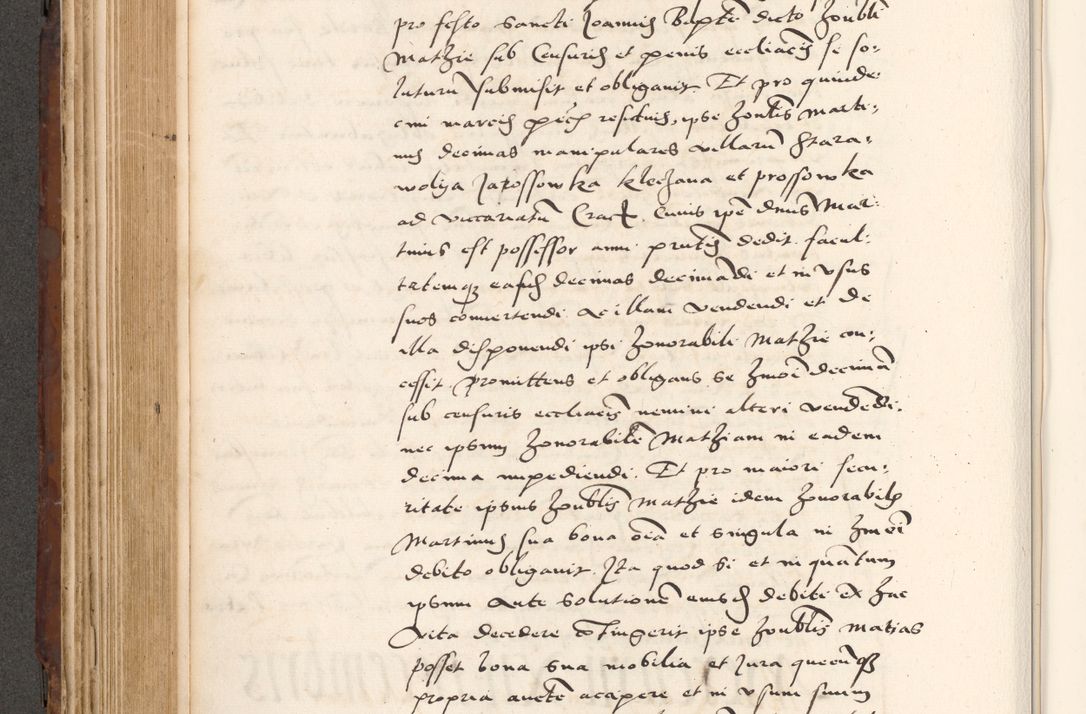 pro festo Sancti Joannis Bapte dicto honbli
Mathie sub Censuris et penis eccliacis se so-
luturu submisit et obligauit. Et pro quinde-
cmi marcis pecz residuis, ipse honblis Marti-
nus decimas manipulares villaru Stara-
wolija Jakossowka kleczana et prossowka
ad viccariatu Crac. Cuius ipe dnus Mar-
tinus est possessor anni pntis dedit facul-
tatemqz easdes decimas decimadi et in vsus
suos conuertendi Ac illam vendendi et de
illa disponendi ipsi honorabili Mathie con-
cessit promittens et obligans se hmoi decima
sub censuris eccliacis nemini alteri vendedi.
nec ipsum honorabile Mathiam in eadem
decima impediendi. Et pro maiori secu-
ritate ipsius honblis Mathie idem honorabilis
Martinus sua bona oia et singula in hmoi
debito obligauit. Ita quod si et in quatum
ipsum Ante Solutione eiusdes debiti Ex hac
Vita decedere cotingerit ipse honblis Matias
posset bona sua mobilia et Jura quecuqz
propria aucte accipere et in vsum suum